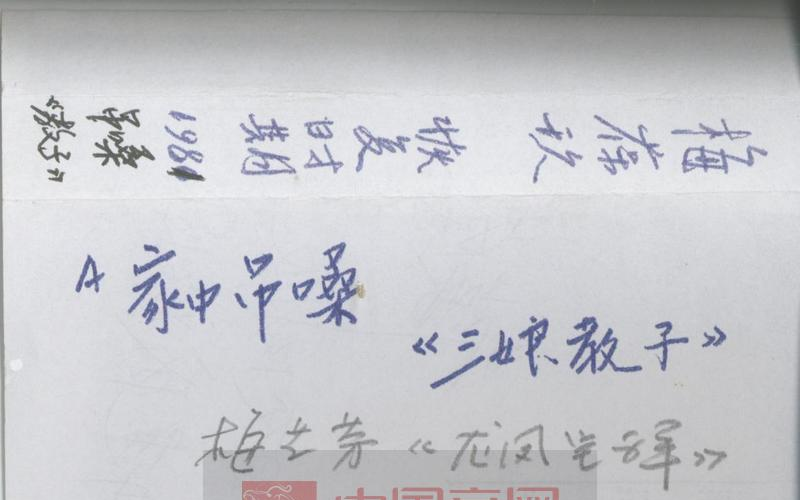 梅葆玖
恢复时期
1981
吊嗓
《教子》
A 家中吊嗓
《三娘教子》
梅兰芳《龙凤呈祥》